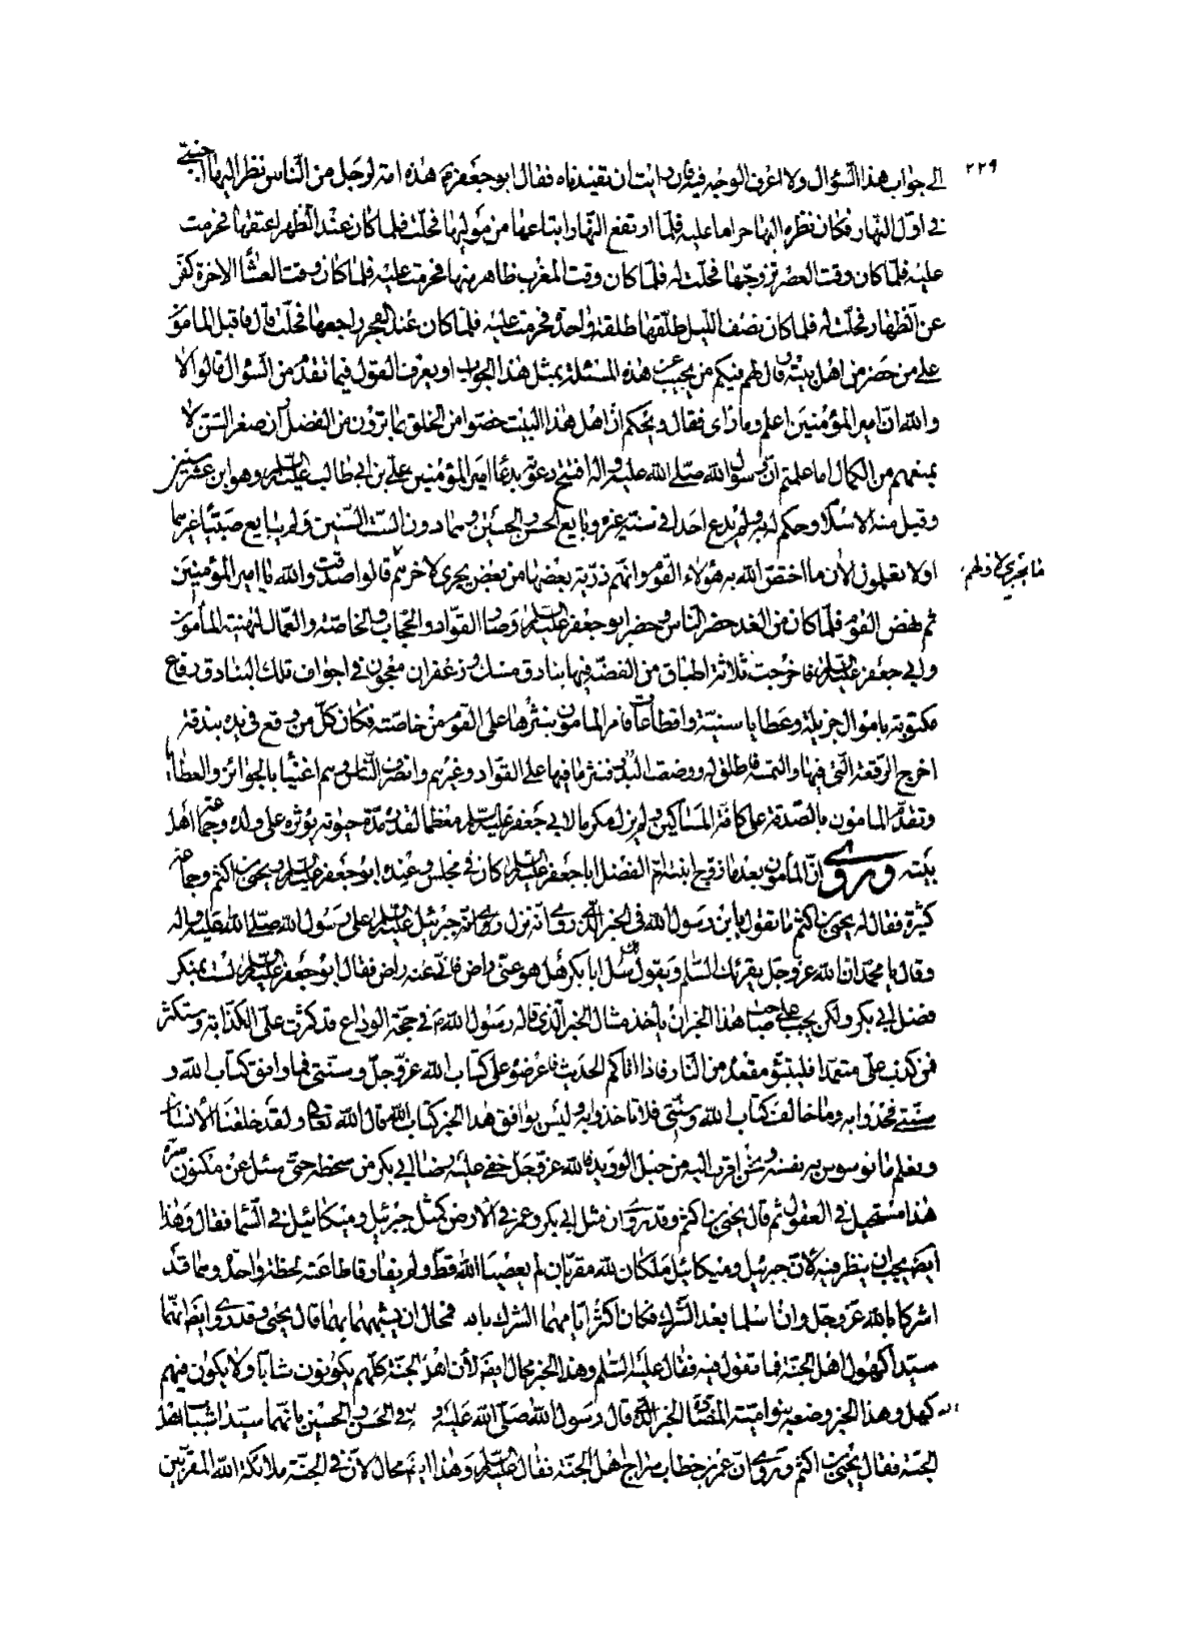 ٢٢٩
الى جواب هذا السّؤال ولا اعرف الوجه فيه فان رايت ان تفيدناه فقال ابو جعفر ع هذه امة لرجل من النّاس نظر اليها اجنبىّ
فى اوّل النّهار فكان نظره اليها حراما عليه فلمّا ارتفع النّهار ابتاعها من موليها فحلّت له فلما كان عند الظهر اعتقها فحرمت
عليه فلمّا كان وقت العصر تزوجها فحلّت له فلمّا كان وقت المغرب ظاهر منها فحرمت عليه فلما كان وقت العشاء الاخرة كفّر
عن الظهار فحلّت له فلما كان نصف الليل طلّقها طلقة واحدة فحرمت عليه فلما كان عند الفجر راجعها فحلّت له قال فاقبل المامون
على من حضر من اهل بيته فقال لهم فيكم من يجيب عن هذه المسئلة بمثل هذا الجواب او يعرف القول فيما تقدّم من السّؤال قالوا لا
والله انّ امير المؤمنين اعلم وما راى فقال ويحكم انّ اهل هذا البيت خصّوا من الخلق بما ترون من الفضل وانّ صغر السّنّ لا
يمنعهم من الكمال اما علمتم انّ رسول الله صلّى الله عليه واله افتتح دعوته بدعاء امير المؤمنين علىّ بن ابى طالب عليه السّلم وهو ابن عشر سنين
وقبل منه الاسلام وحكم له به ولم يدع احدا فى سنّه غيره وبايع الحسن والحسين وهما دون الستّ السّنين ولم يبايع صبيّا غيرهما
اولا تعلمون الان ما اختصّ الله به هؤلاء القوم وانّهم ذرّية بعضها من بعض يجرى لاخرهم قالوا صدقت والله يا امير المؤمنين
ما يجرى لاولهم
ثم نهض القوم فلمّا كان من الغد حضر النّاس وحضر ابو جعفر عليه السّلم وصار القوّاد والحجّاب والخاصّة والعمّال لتهنية المأمون
وابى جعفر عليه السّلم فاخرجت ثلاثة اطباق من الفضّة فيها بنادق مسك وزعفران معجون فى اجواف تلك البنادق رقاع
مكتوبة باموال جزيلة وعطايا سنيّة واقطاعات فامر المامون بنثرها على القوم من خاصّته فكان كلّ من وقع فى يده بندقة
اخرج الرّقعة الّتى فيها والتمسه فاطلق له ووضعت البدر فنثر ما فيها على القوّاد وغيرهم وانصرف النّاس وهم اغنياء بالجوائز والعطايا
وتقدّم المامون بالصّدقة على كافّة المساكين ولم يزل مكرما لابى جعفر عليه السّلم معظّما لقدره مدّة حيوته يؤثره على ولده وجماعة اهل
بيته وروى انّ المأمون بعد ما زوّج ابنته امّ الفضل ابا جعفر عليه السّلم كان فى مجلس وعنده ابو جعفر عليه السّلم ويحيى بن اكثم وجماعة
كثيرة فقال له يحيى بن اكثم ما تقول يا بن رسول الله فى الخبر الّذى روى انّه نزل جبرئيل عليه السّلم على رسول الله صلّى الله عليه واله
وقال يا محمّد انّ الله عزّ وجلّ يقرئك السّلم ويقول لك سل ابا بكر هل هو عنّى راض فانّى عنه راض فقال ابو جعفر عليه السّلم لست بمنكر
فضل ابى بكر ولكن يجب على صاحب هذا الخبر ان يأخذ مثال الخبر الّذى قاله رسول الله ص فى حجّة الوداع قد كثرت علىّ الكذّابة وستكثر
فمن كذب علىّ متعمّدا فليتبوّء مقعده من النّار فاذا اتاكم الحديث فاعرضوه على كتاب الله عزّ وجلّ وسنّتى فما وافق كتاب الله و
سنّتى فخذوا به وما خالف كتاب الله وسنّتى فلا تاخذوا به وليس يوافق هذا الخبر كتاب الله قال الله تعالى ولقد خلقنا الانسان
ونعلم ما توسوس به نفسه ونحن اقرب اليه من حبل الوريد فالله عزّ وجلّ خفى عليه رضا ابى بكر من سخطه حتى سئل عن مكنون سرّه
هذا مستحيل فى العقول ثم قال يحيى بن اكثم وقد روى ان مثل ابى بكر وعمر فى الارض كمثل جبرئيل وميكائيل فى السّماء فقال وهذا
ايضا يجب ان ينظر فيه لانّ جبرئيل وميكائيل ملكان لله مقرّبان لم يعصيا الله قط ولم يفارقا طاعته لحظة واحدة وهما قد
اشركا بالله عزّ وجلّ وان اسلما بعد الشرك فكان اكثر ايّامهما الشرك بالله فمحال ان يشبههما بهما قال يحيى وقد روى ايضا انّهما
سيّدا كهول اهل الجنّة فما تقول فيه فقال عليه السّلم وهذا الخبر محال ايضا لانّ اهل الجنّة كلّهم يكونون شابّا ولا يكون فيهم
كهل وهذا الخبر وضعه بنو اميّة لمضادّة الخبر الّذى قال رسول الله صلّى الله عليه و فى الحسن والحسين بانّهما سيّدا شباب اهل
الجنّة فقال يحيى بن اكثم وروى انّ عمر بن خطاب سراج اهل الجنّة فقال عليه السّلم وهذا ايضا محال لانّ فى الجنّة ملائكة الله المقرّبين